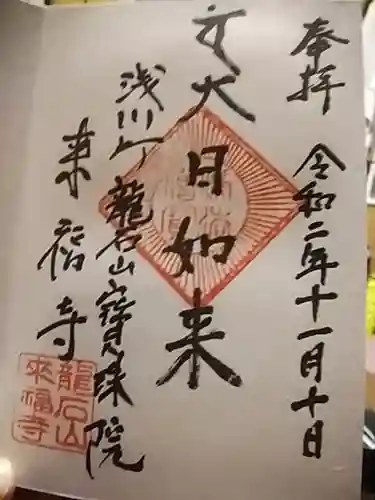 奉拝 令和二年十一月十日
大日如来
浅川町 龍石山寳珠院
来福寺
龍石山
来福寺